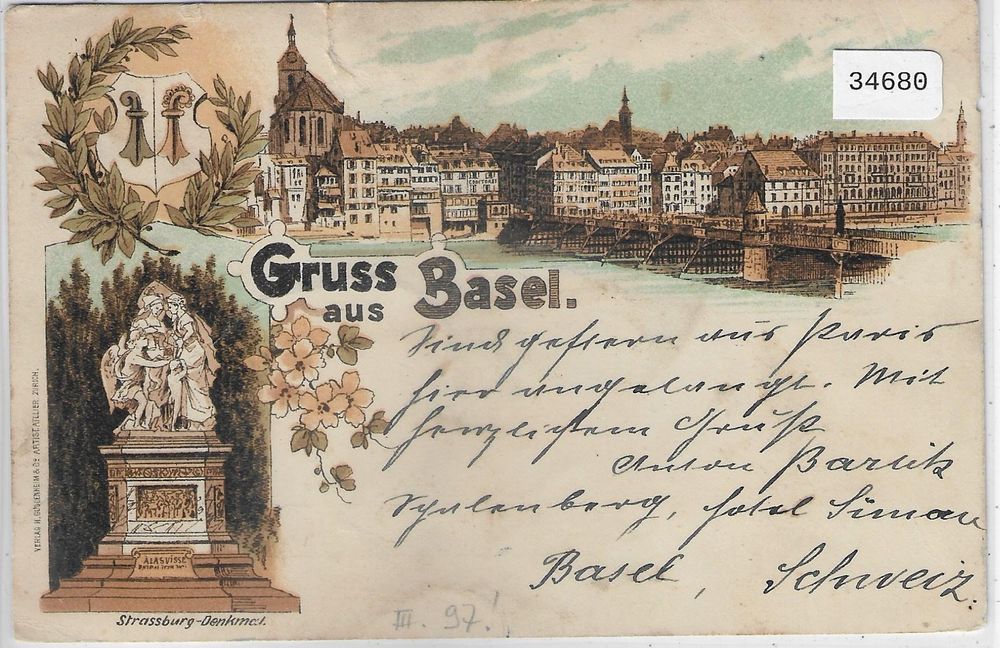 34680
Gruss
aus Basel.
Sind gestern aus Paris
hier angelangt. Mit
herzlichem Gruß
Anton
Spalenberg, Hotel
Basel, Schweiz.
A LA SUISSE
Strassburg-Denkmal.
III. 97!
VERLAG H. GUGGENHEIM & Co ARTIST. ATELIER ZÜRICH.